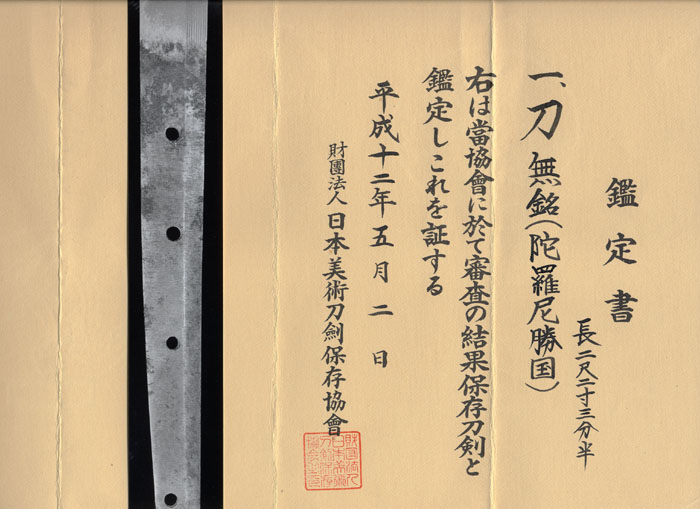 鑑定書
一、刀 無銘(陀羅尼勝国)
長二尺二寸三分半
右は當協會に於て審査の結果保存刀剣と
鑑定しこれを証する
平成十二年五月二日
財團法人 日本美術刀劍保存協會